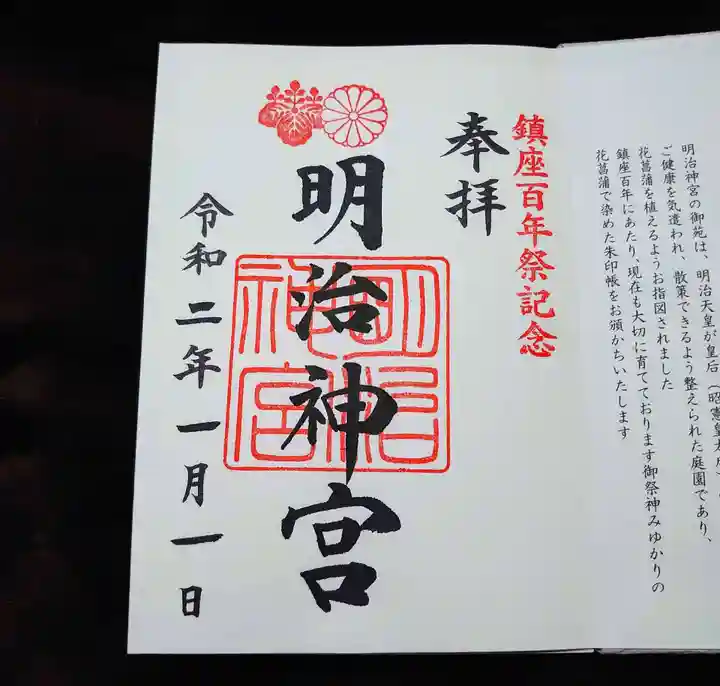 明治神宮の御苑は、明治天皇が皇后(昭憲皇太后)
ご健康を気遣われ、散策できるよう整えられた庭園であり、
花菖蒲を植えるようお指図されました
鎮座百年にあたり、現在も大切に育てております御祭神みゆかりの
花菖蒲で染めた朱印帳をお頒かちいたします
鎮座百年祭記念
奉拝
明治神宮
明治神宮
令和二年一月一日